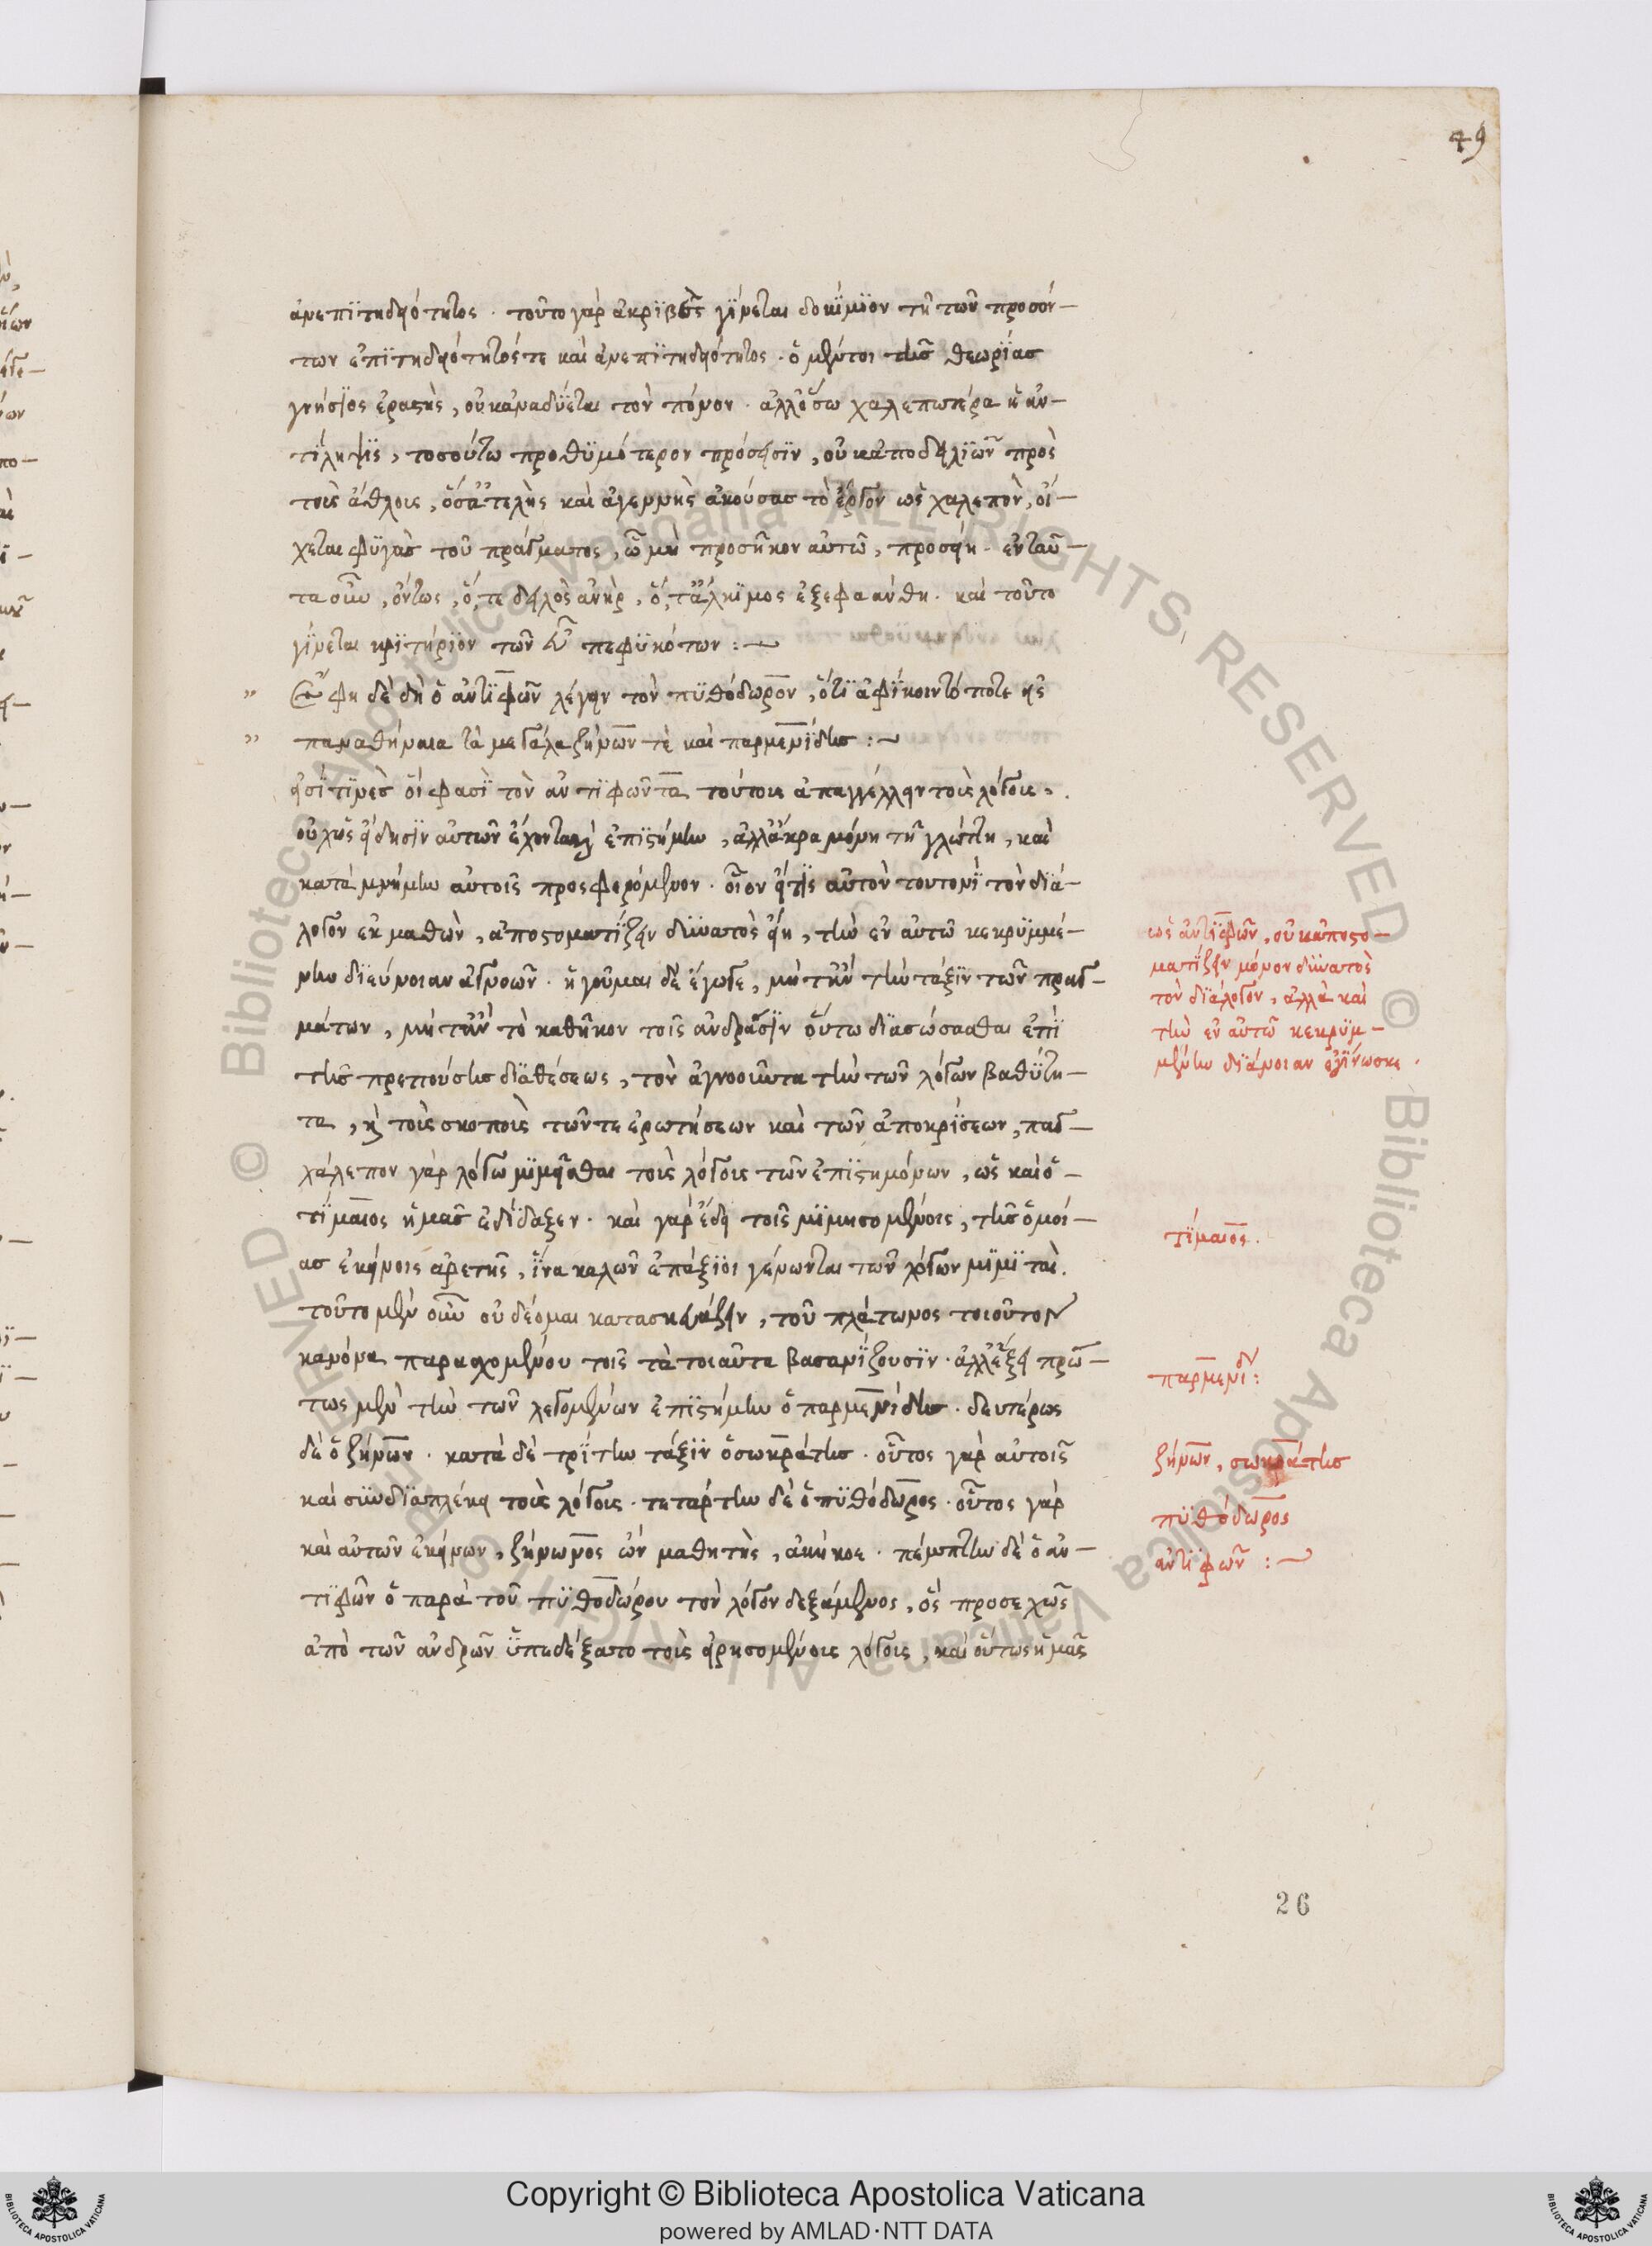 49
ἀνεπιτηδειότητος · τοῦτο γὰρ ἀκριβὲς γίνεται δοκίμιον τῆ τῶν προσόν–
των ἐπιτηδειότητός τε καὶ ἀνεπιτηδειότητος · ὁ μέντοι τῆς θεωρίας
γνήσιος ἐραστὴς, οὐκ ἀναδύεται τὸν πόνον · ἀλλ' ὅσω χαλεπωτέρα ἡ ἀν–
τίληψις, τοσούτω προθυμότερον πρόσεισιν, οὐκ ἀποδειλιῶν πρὸς
τοὺς ἄθλους, ὅσ ἀτελὴς καὶ ἀγεννὴς ἀκούσας τὸ ἔργον ὡς χαλεπὸν, οἴ–
χεται φυγὰς τοῦ πράγματος, ὧ μὴ προσῆκον αὐτῶ, προσήει · ἐνταῦ–
τα οὖν, ὄντως, ὅ, τε δειλὸς ἀνὴρ, ὅ, τ' ἄλκιμος ἐξεφαάνθη · καὶ τοῦτο
γίνεται κριτήριον τῶν εὖ πεφυκότων :
Ἔφη δὲ δὴ ὁ ἀντιφῶν λέγειν τὸν πυθόδωρον, ὅτι ἀφίκοιντό ποτε εἰς
παναθήναια τὰ μεγάλα ζήνων τὲ καὶ παρμενίδης :
εἰσί τινὲς οἵ φασὶ τὸν ἀντιφῶντα τούτους ἀπαγγέλλειν τοὺς λόγους,
οὐχ ὡς εἴδησιν αὐτῶν ἔχοντα ἢ ἐπιστήμην, ἀλλ' ἄκρα μόνη τῆ γλώττη, καὶ
κατὰ μνήμην αὐτοῖς προσφερόμενον · οἷον εἴ τις αὐτὸν τουτονὶ τὸν διά–
λογον ἐκμαθὼν, ἀποστοματίζειν δυνατὸς εἴη, τὴν ἐν αὐτῶ κεκρυμμέ–
νην διεύνοιαν ἀγνοῶν · ἡγοῦμαι δὲ ἔγωγε, μήτ' ἂν τὴν τάξιν τῶν πραγ–
μάτων, μήτ' ἂν τὸ καθῆκον τοῖς ἀνδράσιν οὕτω διασώσασθαι ἐπὶ
τῆς πρεπούσης διαθέσεως, τὸν ἀγνοοῦντα τὴν τῶν λόγων βαθύτη–
τα, ἢ τοὺς σκοποὺς τῶν τε ἐρωτήσεων καὶ τῶν ἀποκρίσεων, παγ–
χάλεπον γὰρ λόγω μιμεῖσθαι τοὺς λόγους τῶν ἐπιστημόνων, ὡς καὶ ὁ–
τίμαιος ἡμᾶς ἐδίδαξεν · καὶ γὰρ ἔδει τοῖς μιμησομένοις, τῆς ὁμοί–
ας ἐκείνοις ἀρετῆς, ἵνα καλῶν ἐπάξιοι γένωνται τῶν λόγων μιμιταὶ.
τοῦτο μὲν οὖν οὐ δέομαι κατασκευάζειν, τοῦ πλάτωνος τοιοῦτον
κανόνα παρασχομένου τοῖς τὰ τοιαῦτα βασανίζουσιν · ἀλλ' ἕξει πρώ–
τως μὲν τὴν τῶν λεγομένων ἐπιστήμην ὁ παρμενίδης · δευτέρως
δὲ ὁ ζήνων · κατὰ δὲ τρίτην τάξιν ὁ σωκράτης · οὗτος γὰρ αὐτοῖς
καὶ συνδιαπλέκει τοὺς λόγους · τετάρτην δὲ ὁ πυθόδωρος · οὗτος γὰρ
καὶ αὐτῶν ἐκείνων, ζήνωνος ὢν μαθητὴς, ἀκήκοε · πέμπτην δὲ ὁ ἀν–
τιφῶν ὁ παρὰ τοῦ πυθοδώρου τὸν λόγον δεξάμενος, ὃς προσεχῶς
ἀπὸ τῶν ἀνδρῶν ὑπεδέξατο τοὺς εἰρησομένους λόγους, καὶ οὕτως ἡμᾶς
ὡς ἀντιφῶν, οὐκ ἀποστο–
ματίζειν μόνον δυνατὸς
τὸν διάλογον, ἀλλὰ καὶ
τὴν ἐν αὐτῶ κεκρυμ–
μένην διάνοιαν ἐγίνωσκε ·
τίμαιος.
παρμενίδ :
ζήνων, σωκράτης
πυθόδωρος
ἀντιφῶν :
26
© Biblioteca Apostolica Vaticana ALL RIGHTS RESERVED © Biblioteca Apostolica Vaticana ALL RIGHTS RESERVED
Copyright © Biblioteca Apostolica Vaticana
powered by AMLAD·NTT DATA
BIBLIOTECA APOSTOLICA VATICANA
BIBLIOTECA APOSTOLICA VATICANA